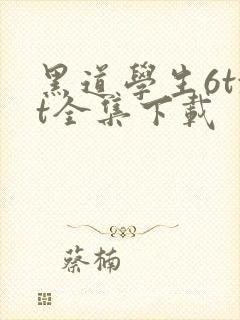 黑道學生6tx
t全集下載
蔡楠